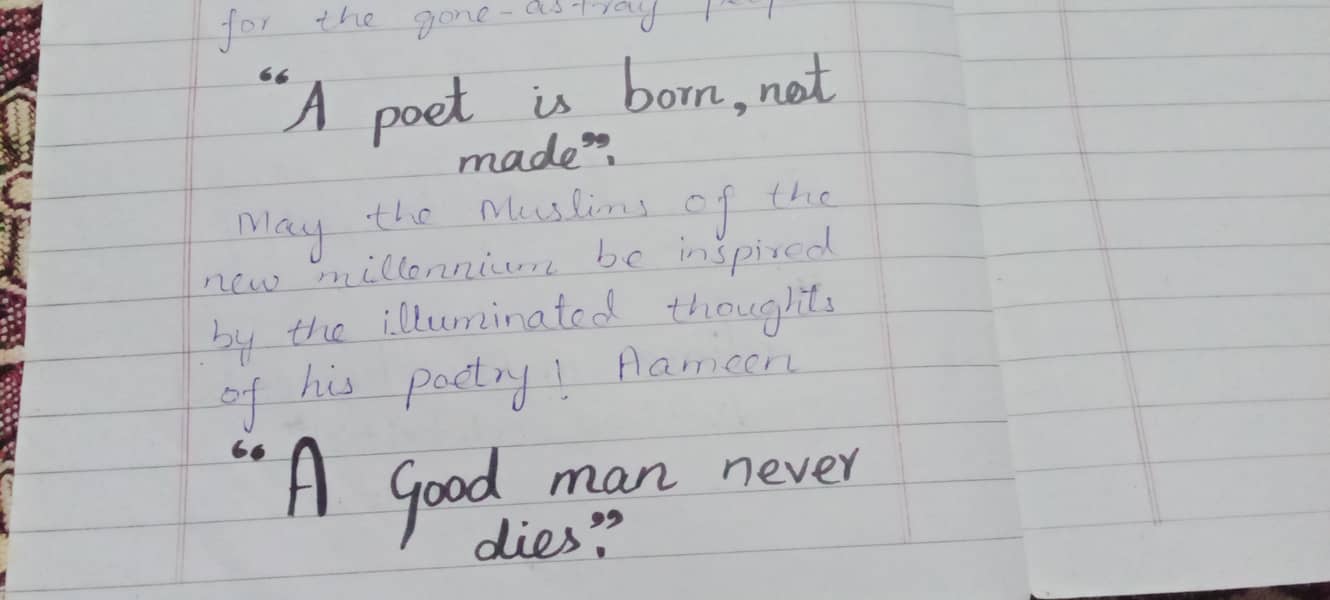 for the gone-astray
“A poet is born, not
made”.
May the Muslims of the
new millennium be inspired
by the illuminated thoughts
of his poetry! Aameen
“A Good man never
dies”.